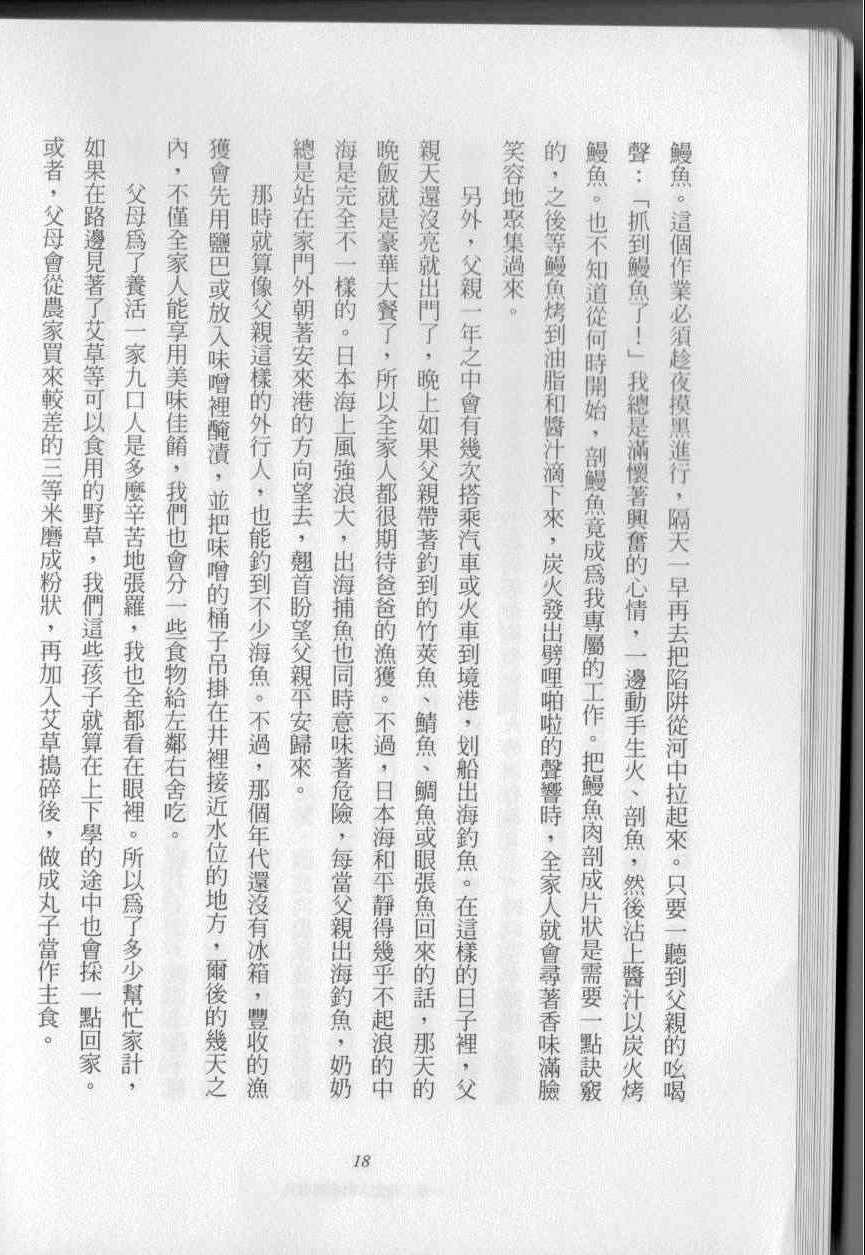 鰻魚。這個作業必須趁夜摸黑進行，隔天一早再去把陷阱從河中拉起來。只要一聽到父親的吆喝
聲：「抓到鰻魚了！」我總是滿懷著興奮的心情，一邊動手生火、剖魚，然後沾上醬汁以炭火烤
鰻魚。也不知道從何時開始，剖鰻魚竟成爲我專屬的工作。把鰻魚肉剖成片狀是需要一點訣竅
的，之後等鰻魚烤到油脂和醬汁滴下來，炭火發出劈哩啪啦的聲響時，全家人就會尋著香味滿臉
笑容地聚集過來。
另外，父親一年之中會有幾次搭乘汽車或火車到境港，划船出海釣魚。在這樣的日子裡，父
親天還沒亮就出門了，晚上如果父親帶著釣到的竹莢魚、鯖魚、鯛魚或眼張魚回來的話，那天的
晚飯就是豪華大餐了，所以全家人都很期待爸爸的漁獲。不過，日本海和平靜得幾乎不起浪的中
海是完全不一樣的。日本海上風強浪大，出海捕魚也同時意味著危險，每當父親出海釣魚，奶奶
總是站在家門外朝著安來港的方向望去，翹首盼望父親平安歸來。
那時就算像父親這樣的外行人，也能釣到不少海魚。不過，那個年代還沒有冰箱，豐收的漁
獲會先用鹽巴或放入味噌裡醃漬，並把味噌的桶子吊掛在井裡接近水位的地方，爾後的幾天之
內，不僅全家人能享用美味佳餚，我們也會分一些食物給左鄰右舍吃。
父母爲了養活一家九口人是多麼辛苦地張羅，我也全都看在眼裡。所以爲了多少幫忙家計，
如果在路邊見著了艾草等可以食用的野草，我們這些孩子就算在上下學的途中也會採一點回家。
或者，父母會從農家買來較差的三等米磨成粉狀，再加入艾草搗碎後，做成丸子當作主食。
18